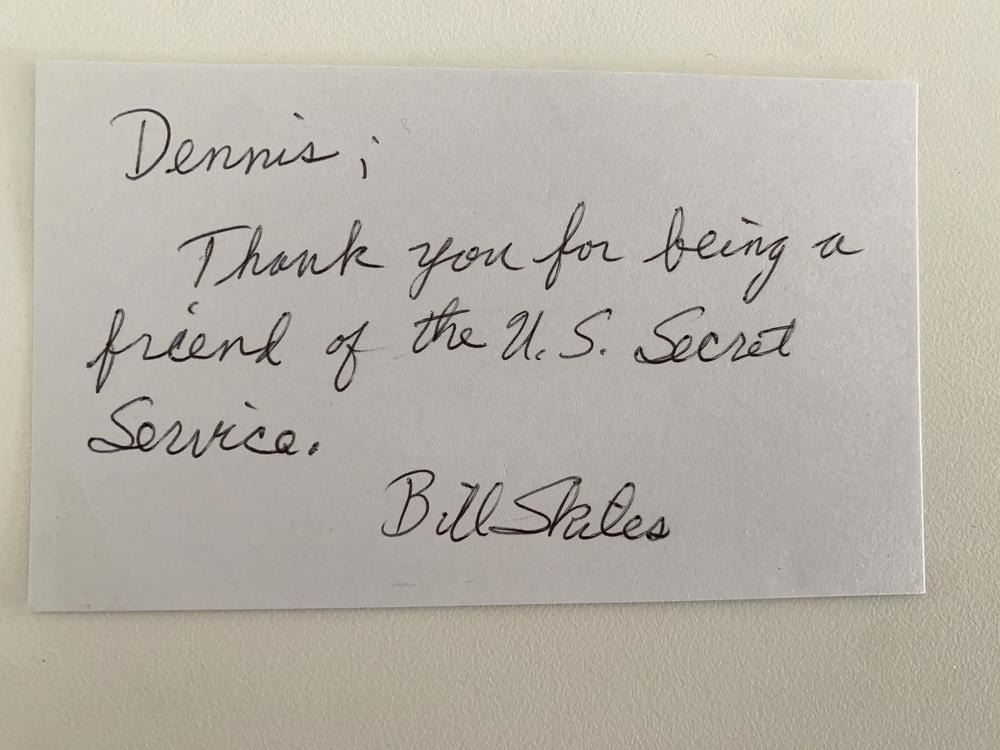 Dennis;
Thank you for being a
friend of the U.S. Secret
Service.
Bill Skiles